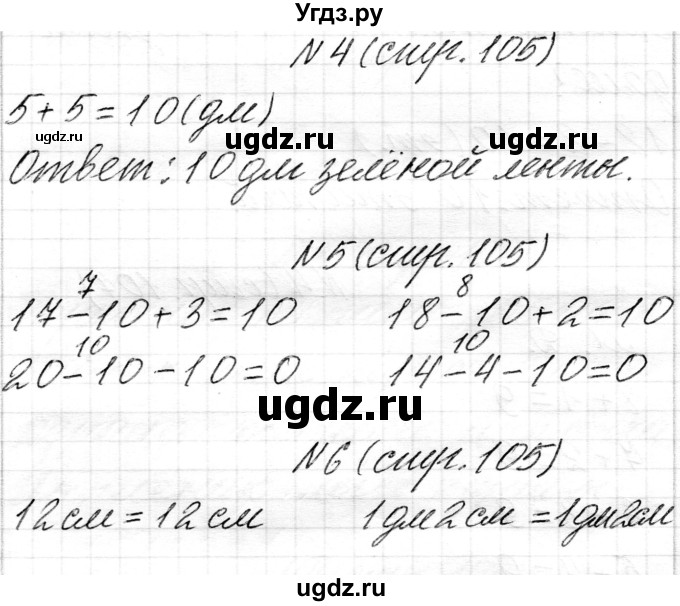 Угдз.ру
N4 (стр. 105)
5+5=10(дм)
ugdz.ru ugdz.ru ugdz.ru
Ответ: 10 дм зелёной ленты.
N5 (стр. 105)
7 8
17-10+3=10 18-10+2=10
10 10
20-10-10=0 14-4-10=0
ugdz.ru ugdz.ru
N6 (стр. 105)
12см=12см 1дм2см=1дм2см
ugdz.ru